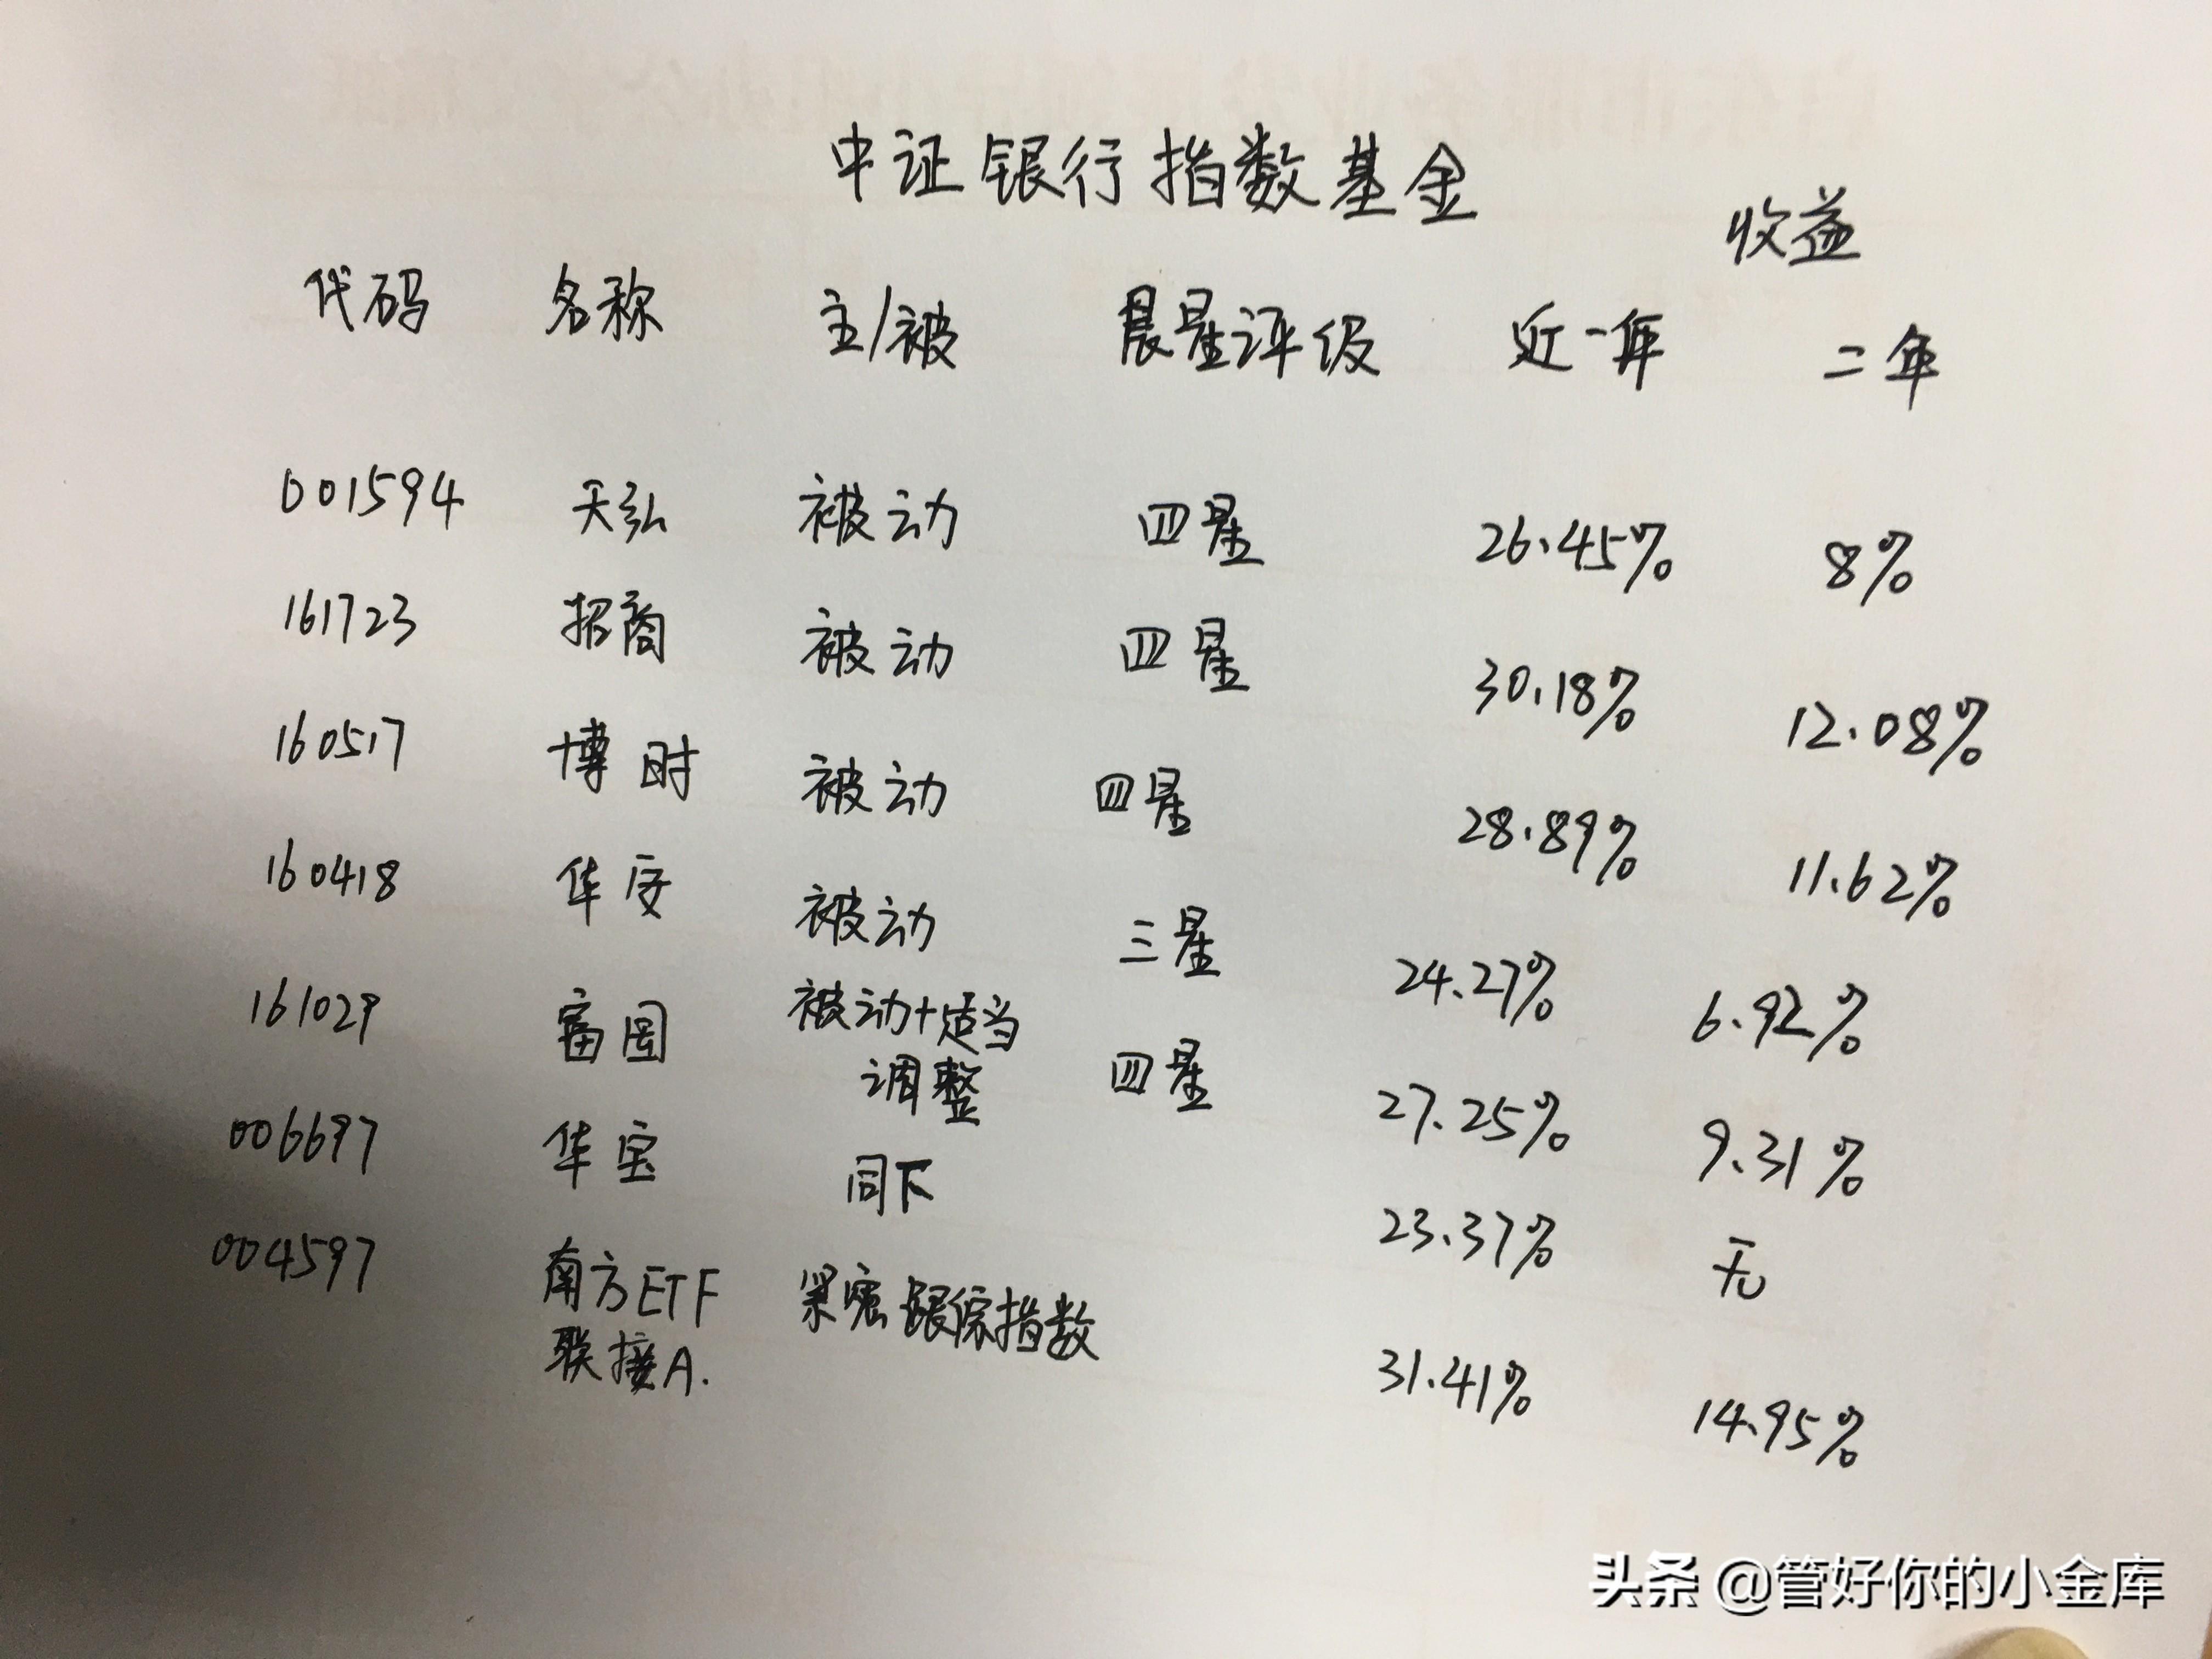 中证银行指数基金
收益
代码 名称 主/被 晨星评级 近一年 二年
001594 天弘 被动 四星 26.45% 8%
161723 招商 被动 四星 30.18% 12.08%
160517 博时 被动 四星 28.89% 11.62%
160418 华安 被动 三星 24.27% 6.92%
161029 富国 被动+适当 四星 27.25% 9.31%
调整
006697 华宝 同下 23.37% 无
004597 南方ETF 紧密跟踪指数 31.41% 14.95%
联接A.
头条 @管好你的小金库